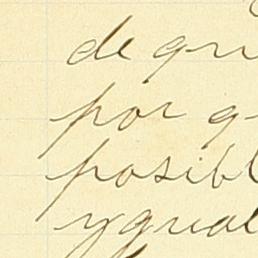 de gu
por q
posibl
ygual